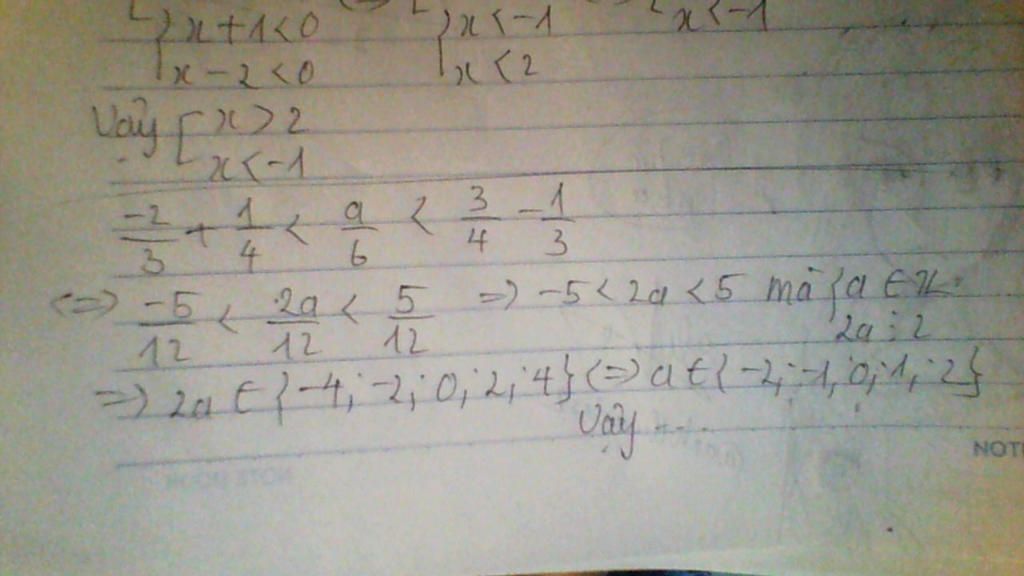 [ { x + 1 < 0 [ { x < -1 [ x < -1
x - 2 < 0 x < 2
Vậy [ x > 2
x < -1
-2/3 + 1/4 < a/6 < 3/4 - 1/3
<=> -5/12 < 2a/12 < 5/12 => -5 < 2a < 5 mà { a ∈ Z
2a ⋮ 2
=> 2a ∈ {-4; -2; 0; 2; 4} <=> a ∈ {-2; -1; 0; 1; 2}
Vậy ...
NOT